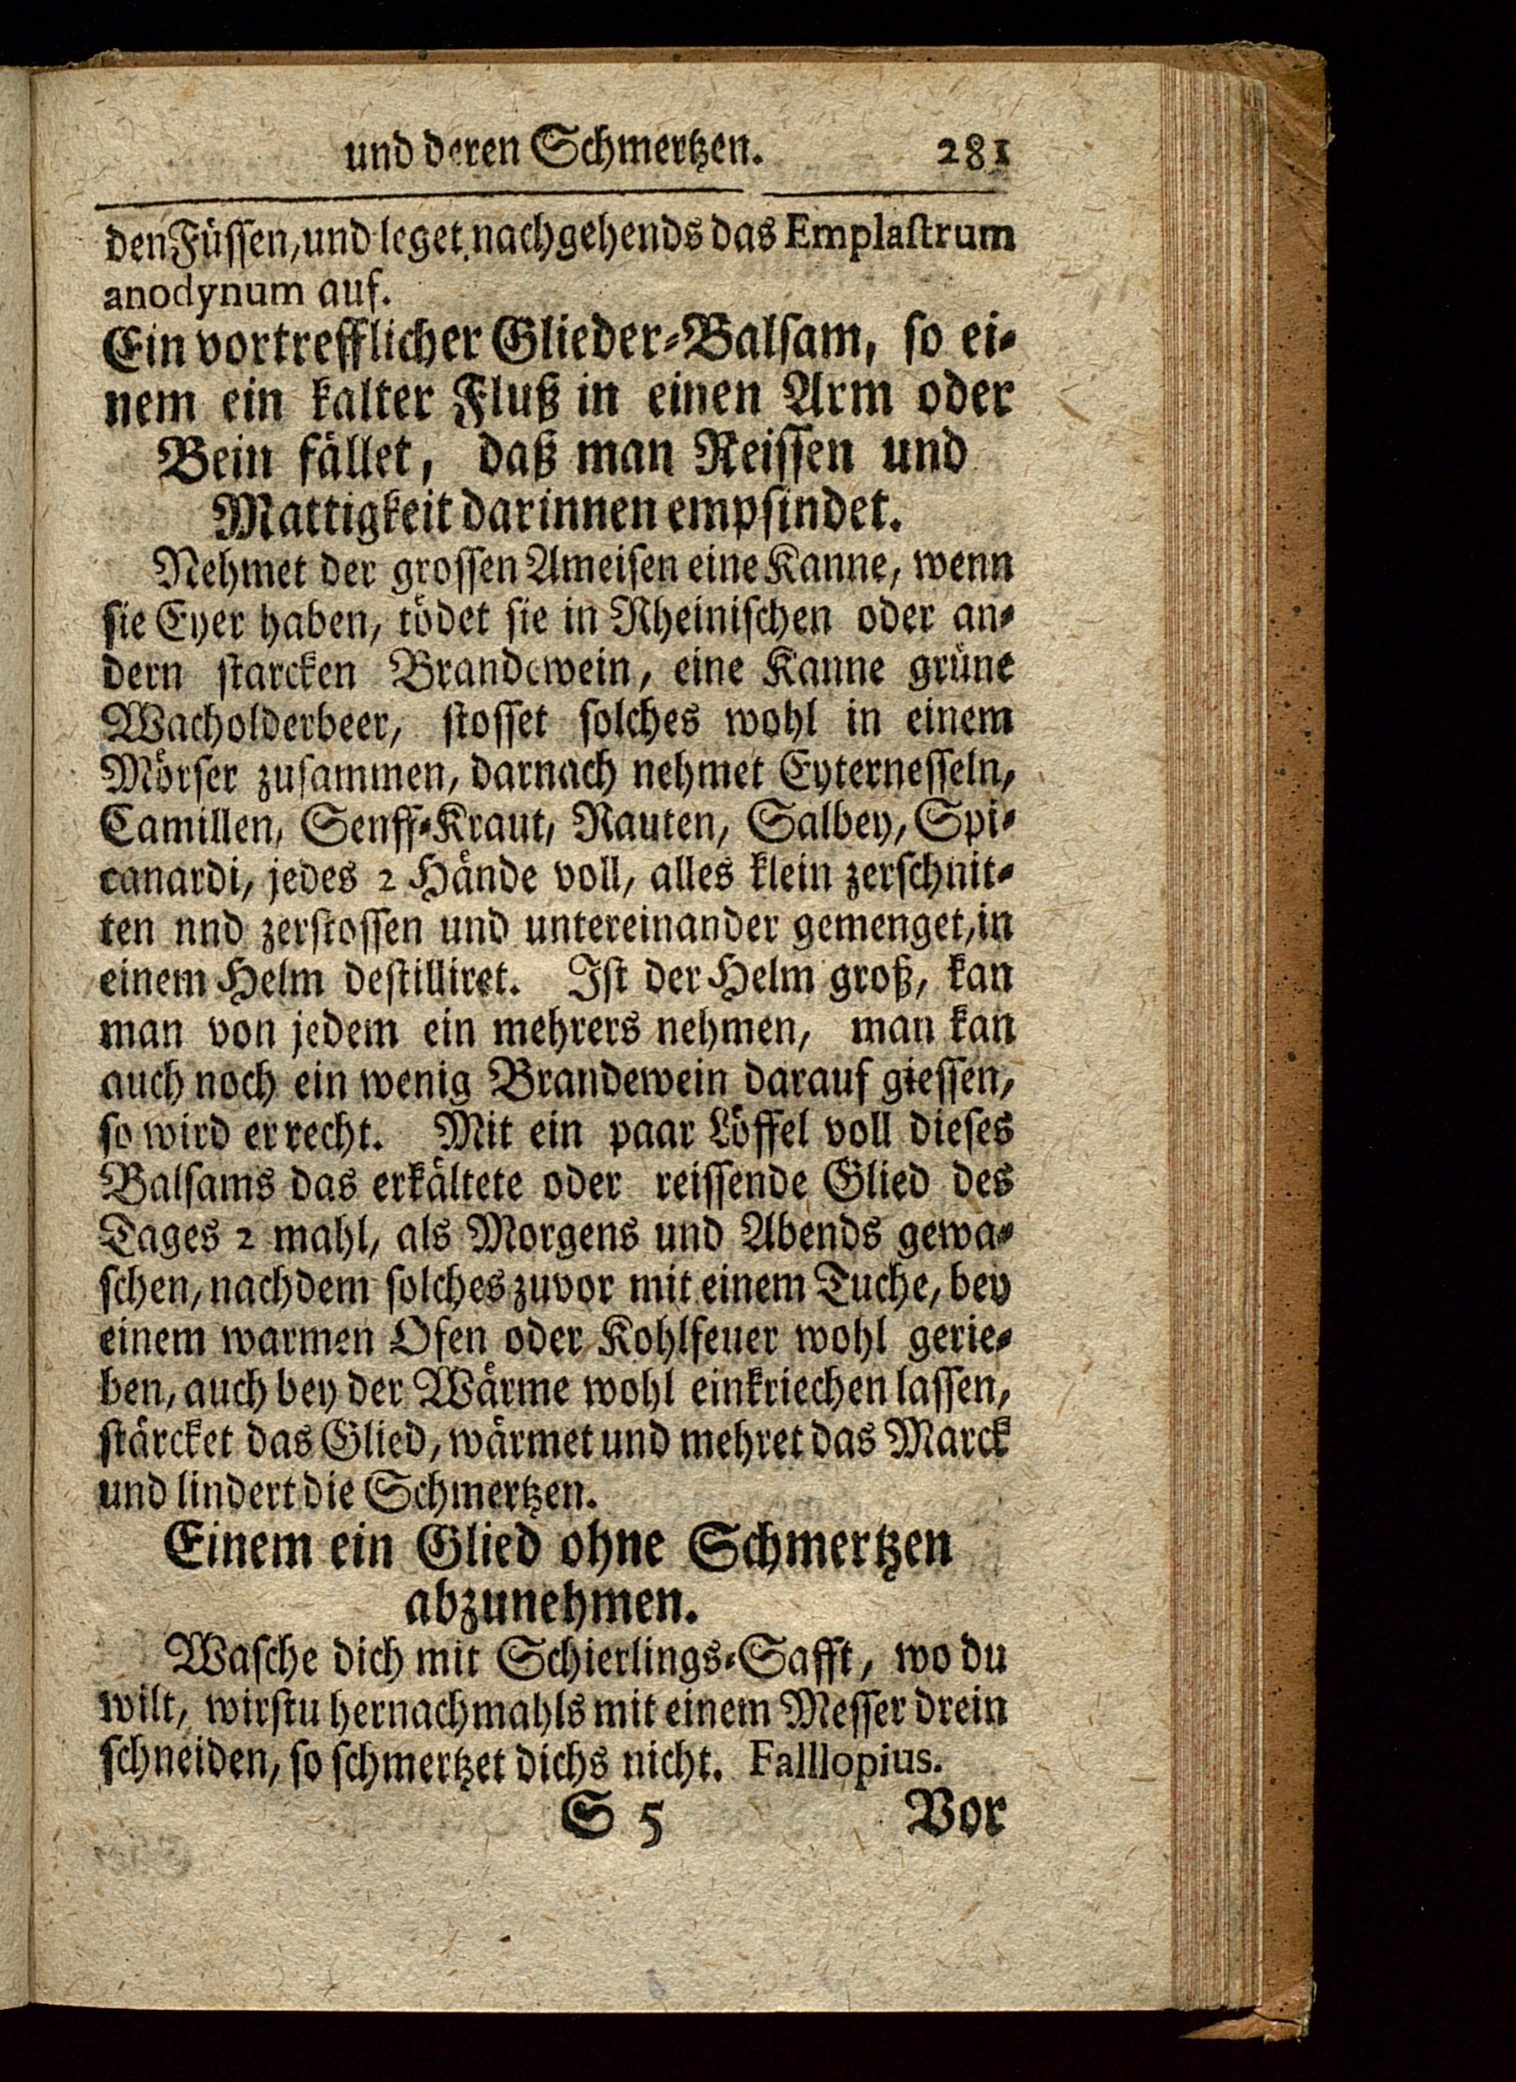 und deren Schmertzen. 281
den Füssen, und leget nachgehends das Emplastrum
anodynum auf.
Ein vortrefflicher Glieder-Balsam, so ei-
nem ein kalter Fluß in einen Arm oder
Bein fället, daß man Reissen und
Mattigkeit darinnen empfindet.
Nehmet der grossen Ameisen eine Kanne, wenn
sie Eyer haben, tödet sie in Rheinischen oder an-
dern starcken Brandewein, eine Kanne grüne
Wacholderbeer, stosset solches wohl in einem
Mörser zusammen, darnach nehmet Eyternesseln,
Camillen, Senff-Kraut, Rauten, Salbey, Spi-
canardi, jedes 2 Hände voll, alles klein zerschnit-
ten nnd zerstossen und untereinander gemenget, in
einem Helm destilliret. Ist der Helm groß, kan
man von jedem ein mehrers nehmen, man kan
auch noch ein wenig Brandewein darauf giessen,
so wird er recht. Mit ein paar Löffel voll dieses
Balsams das erkältete oder reissende Glied des
Tages 2 mahl, als Morgens und Abends gewa-
schen, nachdem solches zuvor mit einem Tuche, bey
einem warmen Ofen oder Kohlfeuer wohl gerie-
ben, auch bey der Wärme wohl einkriechen lassen,
stärcket das Glied, wärmet und mehret das Marck
und lindert die Schmertzen.
Einem ein Glied ohne Schmertzen
abzunehmen.
Wasche dich mit Schierlings-Safft, wo du
wilt, wirstu hernachmahls mit einem Messer drein
schneiden, so schmertzet dichs nicht. Falllopius.
S 5 Vor